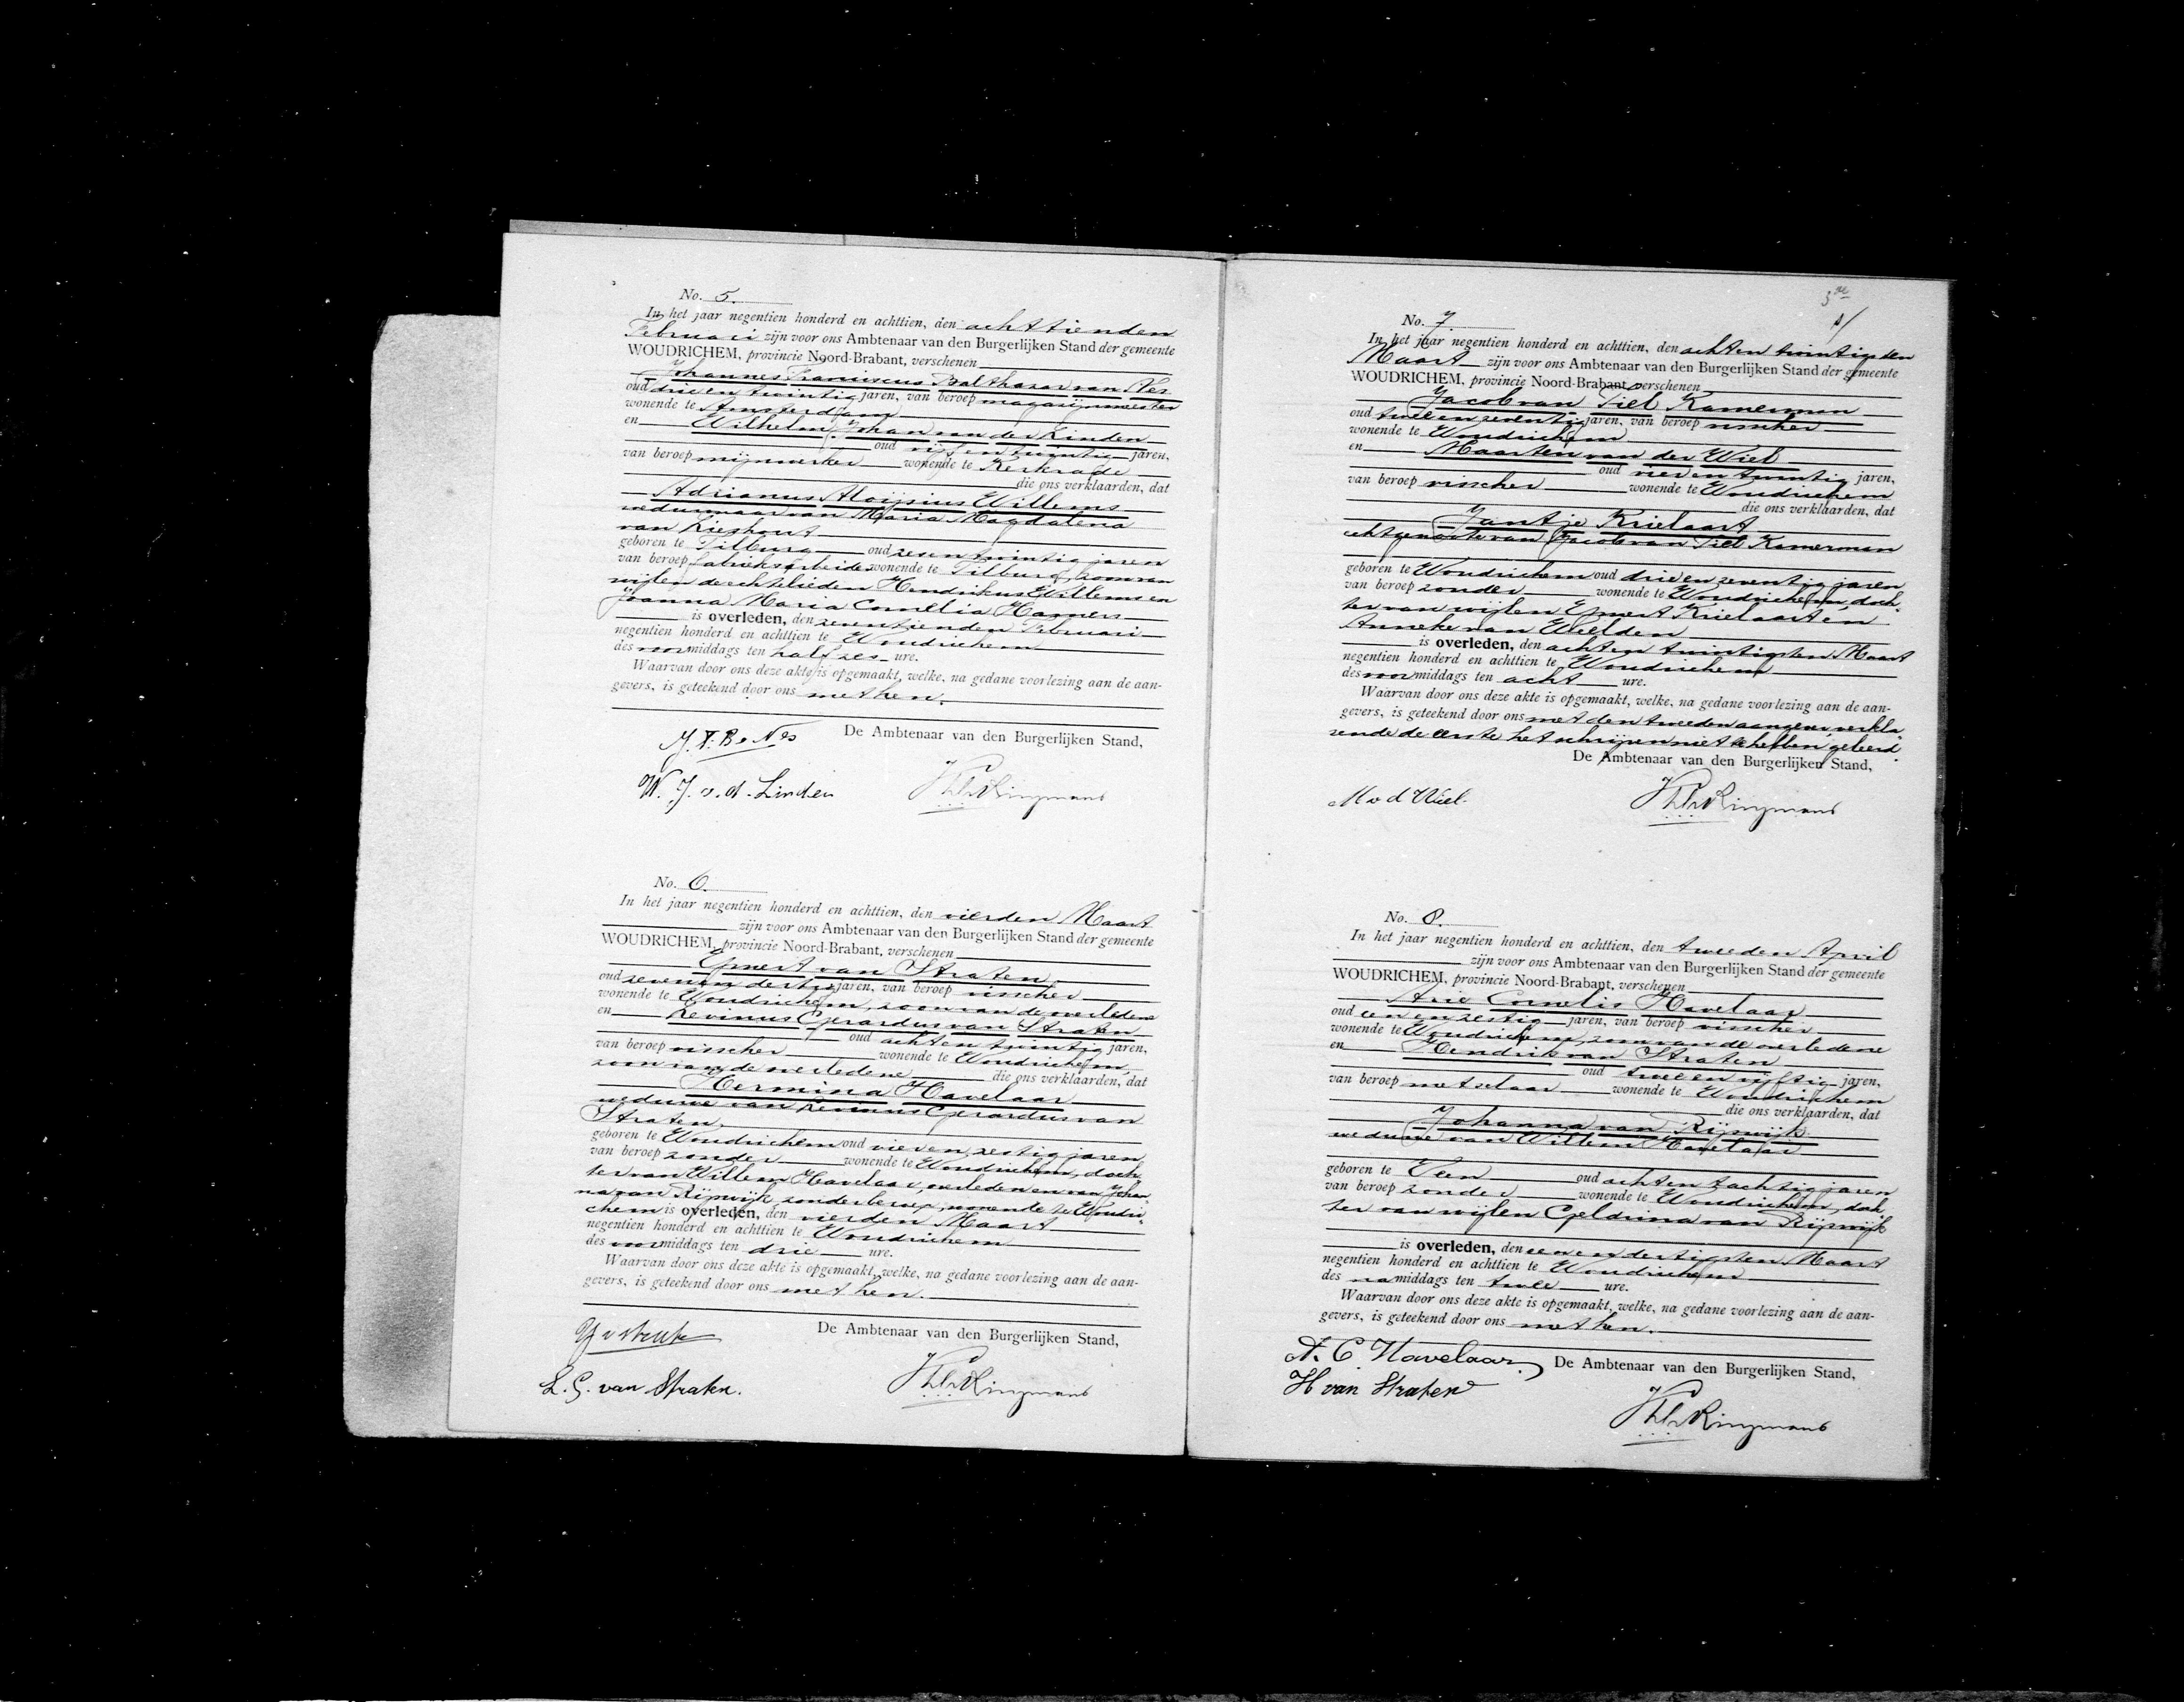 No. 5.
In het jaar negentien honderd en achttien, den achttienden
Februari zijn voor ons Ambtenaar van den Burgerlijken Stand der gemeente
WOUDRICHEM, provincie Noord-Brabant, verschenen
Johannes Franciscus Balthazar van Nes
oud drie en twintig jaren, van beroep magazijnmeester
wonende te Amsterdam
en Wilhelm Johan van der Linden
oud vijf en twintig jaren,
van beroep mijnwerker wonende te Kerkrade
die ons verklaarden, dat
Adrianus Aloijsius Willems
weduwnaar van Maria Magdalena
van Lieshout
geboren te Tilburg oud zes en twintig jaren
van beroep fabrieksarbeider wonende te Tilburg, zoon van
wijlen de echtelieden Hendrikus Willems en
Joanna Maria Cornelia Hamers
is overleden, den zeventienden Februari
negentien honderd en achttien te Woudrichem
des voormiddags ten half zes ure.
Waarvan door ons deze akte is opgemaakt, welke, na gedane voorlezing aan de aan-
gevers, is geteekend door ons met hen.
De Ambtenaar van den Burgerlijken Stand,
W. J. v. d. Linden
No. 6.
In het jaar negentien honderd en achttien, den vierden Maart
zijn voor ons Ambtenaar van den Burgerlijken Stand der gemeente
WOUDRICHEM, provincie Noord-Brabant, verschenen
Ijmert van Straten
oud zeven en dertig jaren, van beroep visscher
wonende te Woudrichem, zoon van de overledene
en Levinus Gerardus van Straten
oud acht en twintig jaren,
van beroep visscher wonende te Woudrichem,
zoon van de overledene die ons verklaarden, dat
Hermina Havelaar
weduwe van Levinus Gerardus van
Straten
geboren te Woudrichem oud vier en zestig jaren
van beroep zonder wonende te Woudrichem, doch
ter van Willem Havelaar, overleden en van Johan
na van Rijswijk, zonder beroep, wonende te Woudri-
chem is overleden, den vierden Maart
negentien honderd en achttien te Woudrichem
des voormiddags ten drie ure.
Waarvan door ons deze akte is opgemaakt, welke, na gedane voorlezing aan de aan-
gevers, is geteekend door ons met hen.
De Ambtenaar van den Burgerlijken Stand,
L. G. van Straten.
3de
No. 7.
In het jaar negentien honderd en achttien, den acht en twintigsten
Maart zijn voor ons Ambtenaar van den Burgerlijken Stand der gemeente
WOUDRICHEM, provincie Noord-Brabant, verschenen
Jacob van Tiel Kamerman
oud twee en zeventig jaren, van beroep visscher
wonende te Woudrichem
en Maarten van der Wiel
oud vier en twintig jaren,
van beroep visscher wonende te Woudrichem
die ons verklaarden, dat
Jantje Krielaart
echtgenoote van Jacob van Tiel Kamerman
geboren te Woudrichem oud drie en zeventig jaren
van beroep zonder wonende te Woudrichem, doch-
ter van wijlen Ijmert Krielaart en
Anneke van Weelden
is overleden, den acht en twintigsten Maart
negentien honderd en achttien te Woudrichem
des voormiddags ten acht ure.
Waarvan door ons deze akte is opgemaakt, welke, na gedane voorlezing aan de aan-
gevers, is geteekend door ons met den tweeden aangever verkla
rende de eerste het schrijven niet te hebben geleerd.
De Ambtenaar van den Burgerlijken Stand,
M v d Wiel.
No. 8.
In het jaar negentien honderd en achttien, den tweeden April
zijn voor ons Ambtenaar van den Burgerlijken Stand der gemeente
WOUDRICHEM, provincie Noord-Brabant, verschenen
Arie Cornelis Havelaar
oud een en zestig jaren, van beroep visscher
wonende te Woudrichem, zoon van de overledene
en Hendrik van Straten
oud twee en vijftig jaren,
van beroep metselaar wonende te Woudrichem
die ons verklaarden, dat
Johanna van Rijswijk
weduwe van Willem Havelaar
geboren te Veen oud acht en tachtig jaren
van beroep zonder wonende te Woudrichem, doch
ter van wijlen Geldrina van Rijswijk
is overleden, den een en dertigsten Maart
negentien honderd en achttien te Woudrichem
des namiddags ten twee ure.
Waarvan door ons deze akte is opgemaakt, welke, na gedane voorlezing aan de aan-
gevers, is geteekend door ons met hen.
A. C. Havelaar
De Ambtenaar van den Burgerlijken Stand,
H van Straten